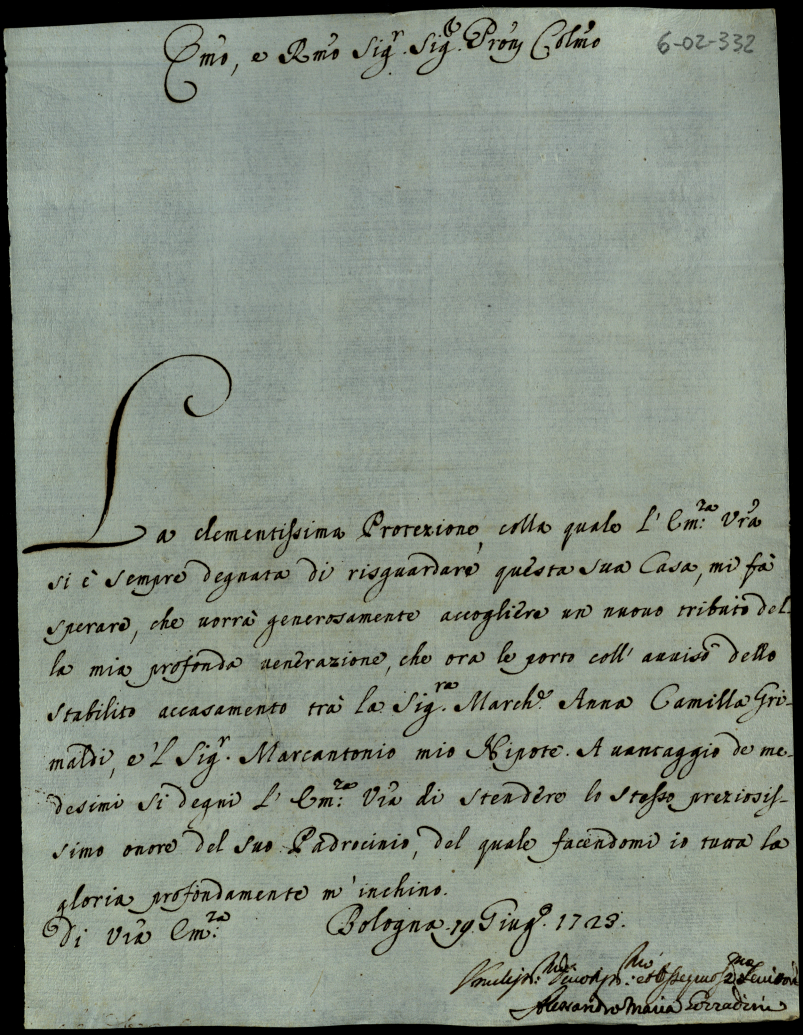 6-02-332
Emo, e Rmo Sigr. Sigr. Proñ Colmo
La clementissima Protezione, colla quale l'Em:za Vrã
si è sempre degnata di risguardare questa sua Casa, mi fà
sperare, che vorrà generosamente accogliere un nuovo tributo del-
la mia profonda venerazione, che ora le porto coll'avviso dello
stabilito accasamento trà la Sig.ra March.e Anna Camilla Gri-
maldi, e 'l Sigr. Marcantonio mio Nipote. A vantaggio de me-
desimi si degni l'Em:za Vrã di stendere lo stesso preziosis-
simo onore del suo Padrocinio, del quale facendomi io tutta la
gloria profondamente m'inchino.
Di Vrã Em:za Bologna 19. Giugo. 1723.
Alessandro Maria